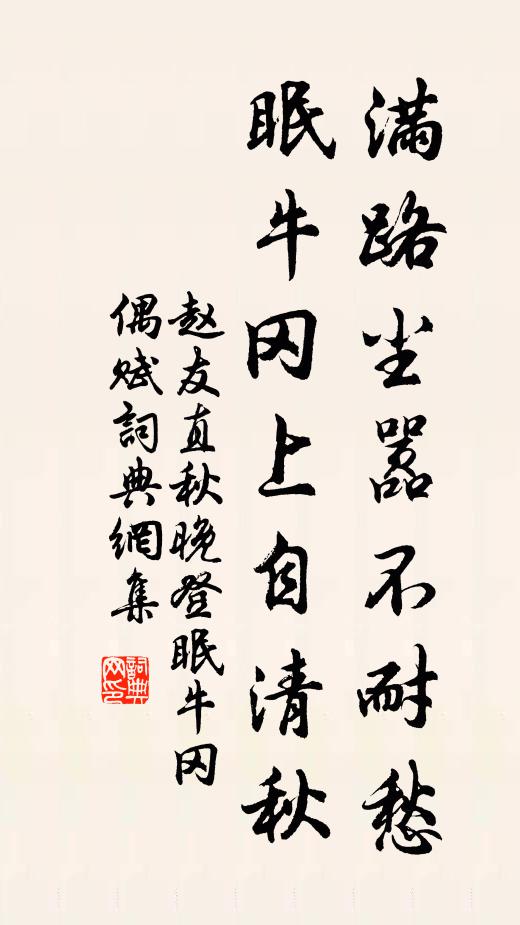 满路尘嚣不耐愁
眠牛冈上自清秋
赵友直秋晚登眠牛冈
偶赋詞典網集
詞典
网印